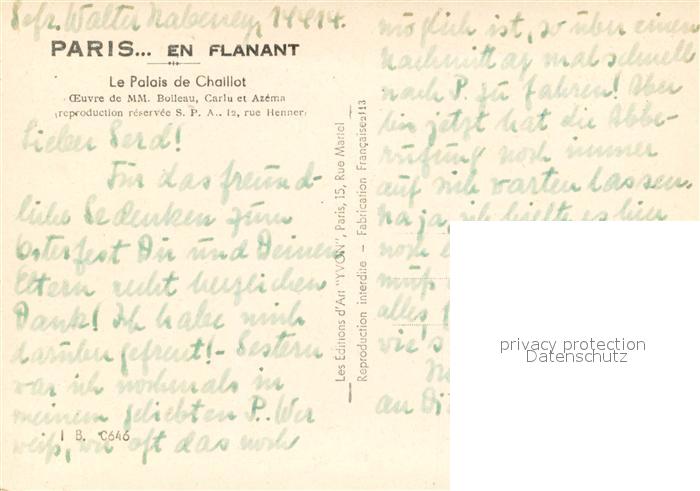 Gefr. Walter
PARIS... EN FLANANT
Le Palais de Chaillot
Œuvre de MM. Boileau, Carlu et Azéma
(reproduction réservée S. P. A., 12, rue Henner)
Lieber Gerd!
Für das freund-
liche Gedenken zum
Osterfest Dir und Deinen
Eltern recht herzlichen
Dank! Ich habe mich
darüber gefreut! - Gestern
war ich nochmals in
meinem geliebten P. Wer
weiß, wie oft das noch
I B. C646
Les Editions d'Art "YVON", Paris, 15, Rue Martel
Reproduction interdite - Fabrication Française
möglich ist, so über einen
Nachmittag mal schnell
nach P. zu fahren! Aber
bis jetzt hat die Abbe-
rufung noch immer
auf sich warten lassen.
Na ja, ich hielte es hier
noch
muß
alles
wie's
an
privacy protection
Datenschutz